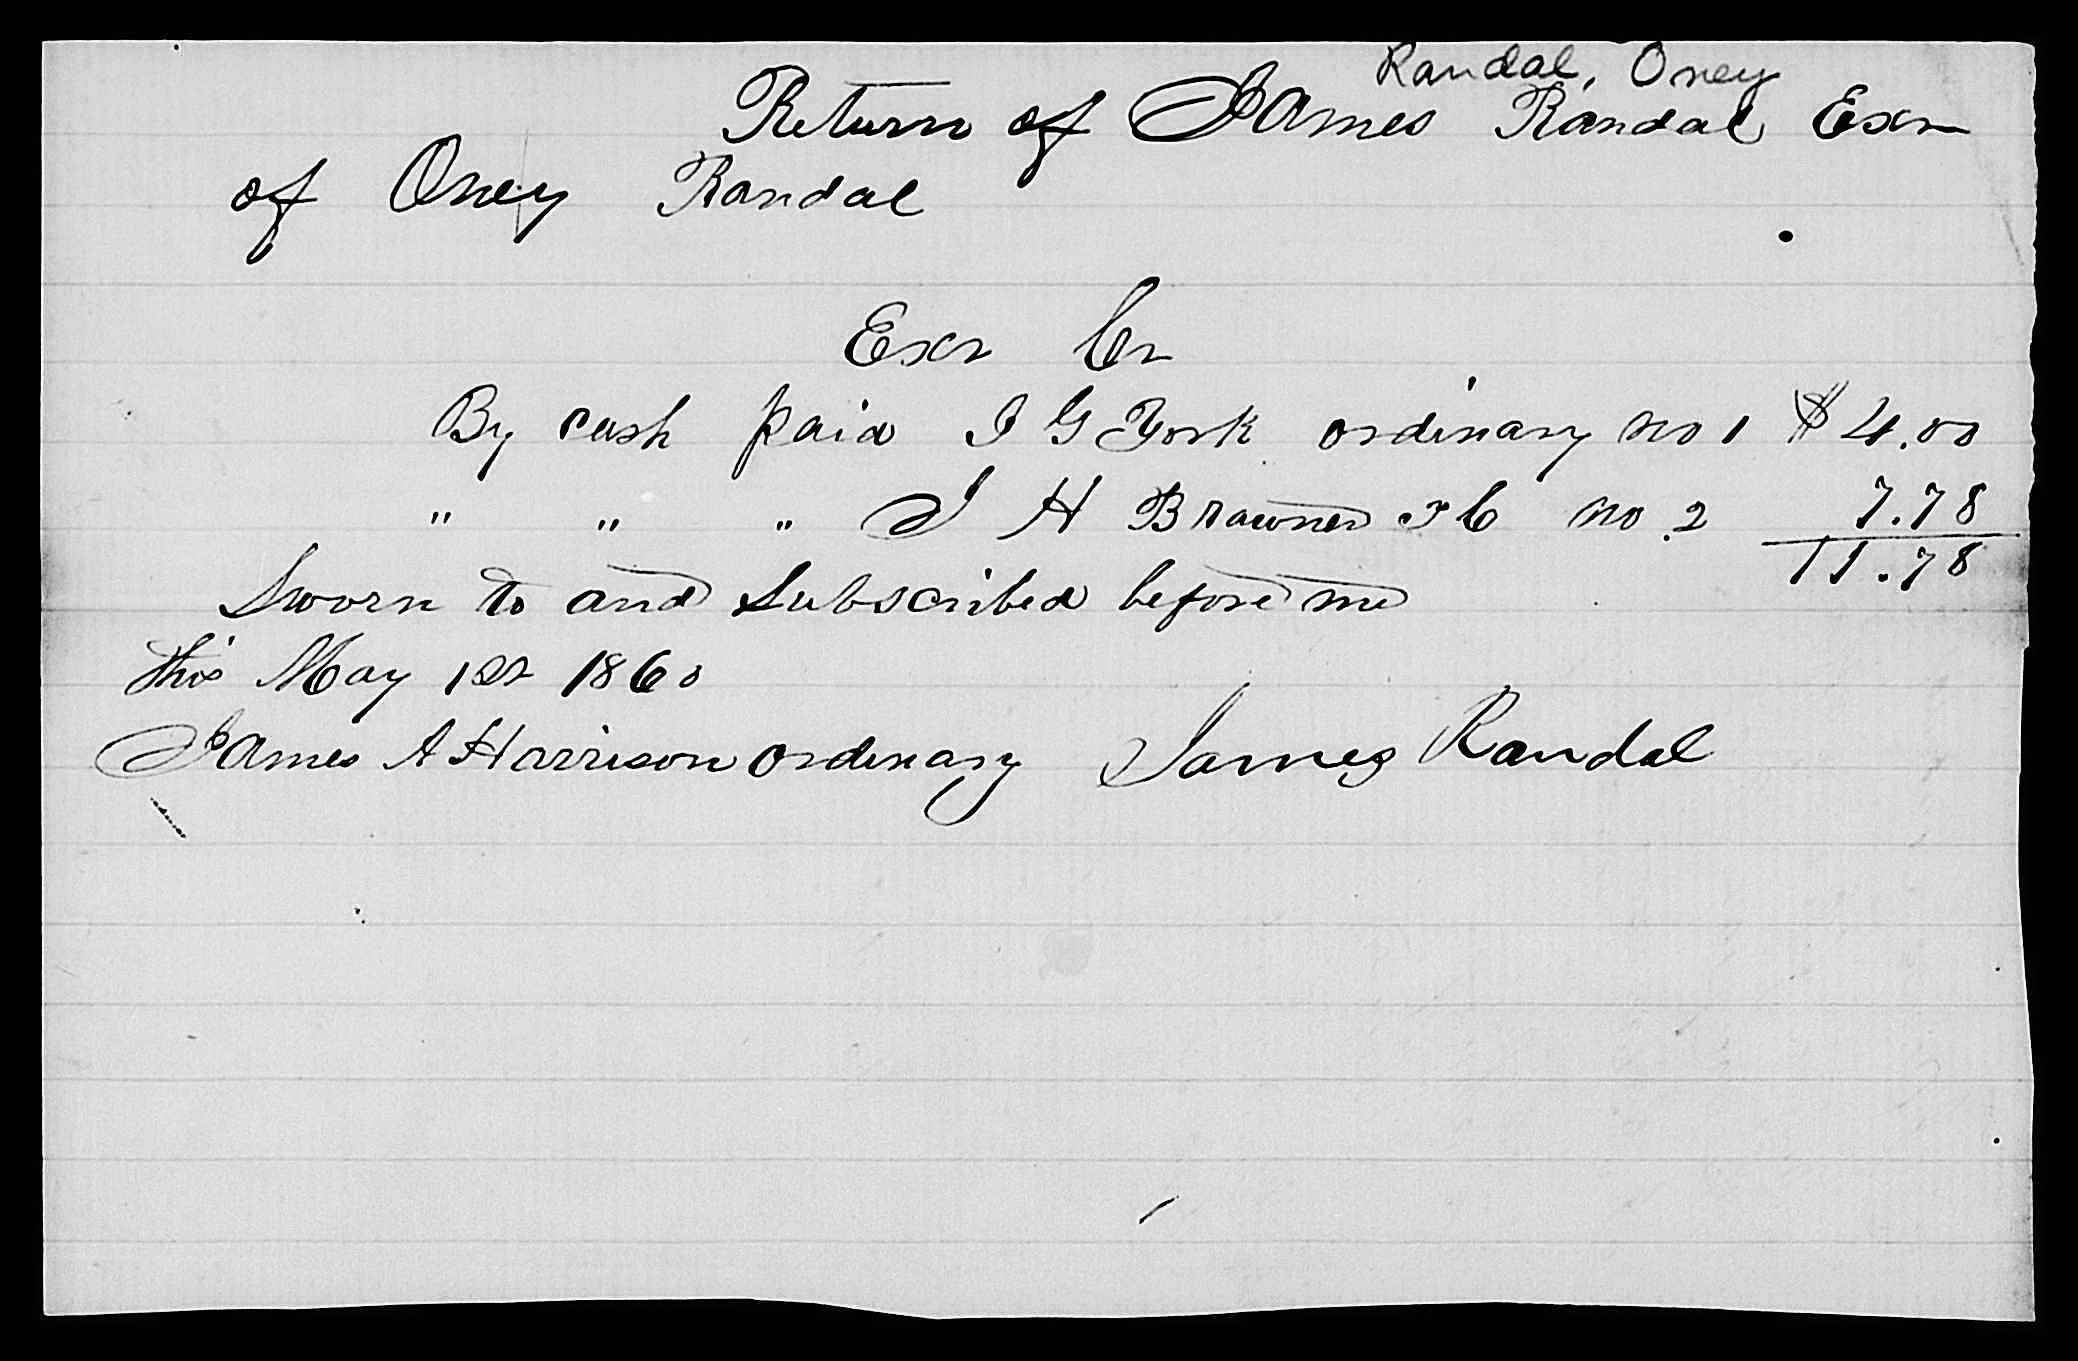 Randal, Oney
Return of James Randal Exr
of Oney Randal
Exr Cr
By cash paid I G York ordinary no 1 $ 4.00
" " " J H Brawner T C no 2 7.78
11.78
Sworn to and Subscribed before me
this May 1st 1860
James A Harrison ordinary James Randal